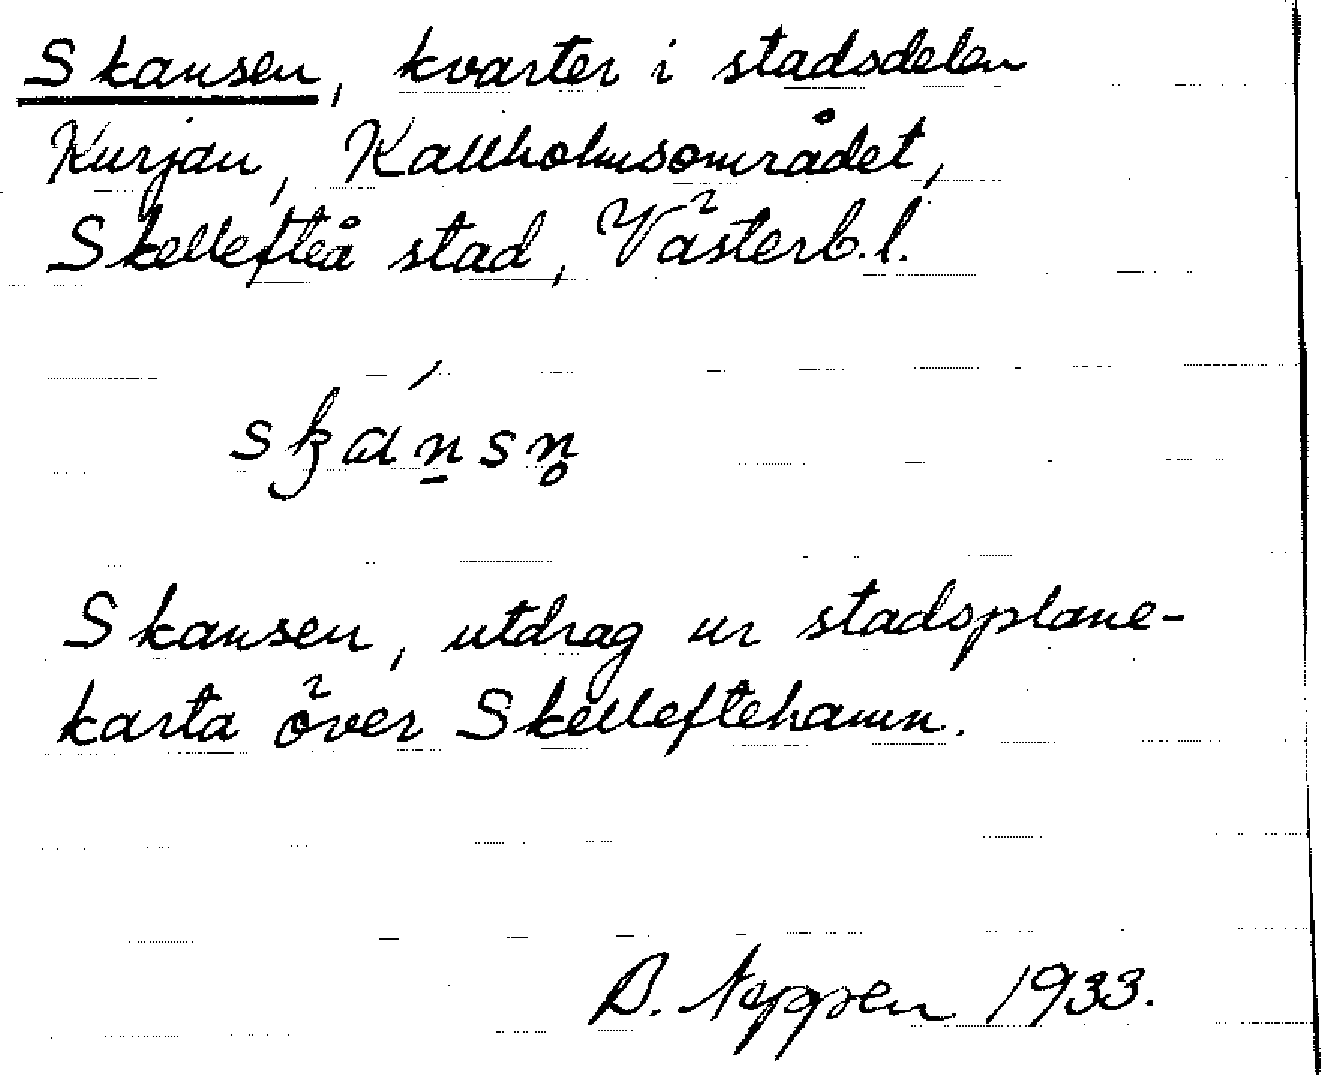 Skansen, kvarter i stadsdelen
Kurjan, Kallholmsområdet,
Skellefteå stad, Västerb.l.
skánsn̥
Skansen, utdrag ur stadsplane-
karta över Skelleftehamn.
1933.